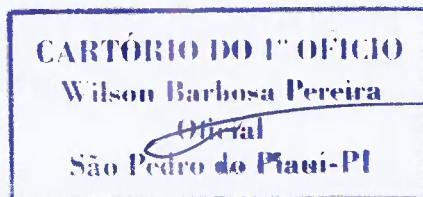 CARTÓRIO DO 1º OFICIO
Wilson Barbosa Pereira
Oficial
São Pedro do Piauí-PI